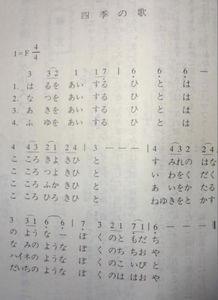 四季の歌
1=F 4/4
3 3 2 1 1 7 | 6 6 6 —
1. はるを あい する ひ と は
2. なつを あい する ひ と は
3. あきを あい する ひ と は
4. ふゆを あい する ひ と は
4 4 3 2 1 2 3 — — — | 4 4 3 2 2 4
こ ころ きよ き ひ と す みれの はな
こ ころ つよ き ひ と い わをく だく
こ ころ ふか き ひ と あ いをか たる
こ ころ ひろ き ひ と ねゆきをと かす
3 3 1 6 6 | 7 3 2 1 7 1 | 6 — — —
の ような ー ぼ くのと もだ ち
なみの ような ぼ くの ちち おや
ハイネの ような ぼ くの こい びと
だいちの ような ぼ くの はは おや